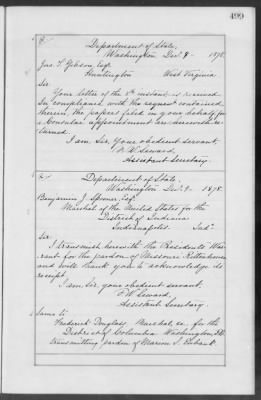 499
Department of State,
Washington Dec. 9 - 1878.
Jno. T. Gibson, Esqr.
Huntington West Virginia
Sir
Your letter of the 5th instant, is received
In compliance with the request contained
therein, the papers filed in your behalf for
a Consular appointment are herewith re-
turned.
I am, Sir, Your obedient servant,
F. W. Seward,
Assistant Secretary.
Department of State,
Washington Dec. 9 - 1878.
Benjamin J. Spooner, Esqr.
Marshal of the United States for the
District of Indiana
Indianapolis. Inda.
Sir:
I transmit herewith the President's War-
rant for the pardon of Missouri Rittenhouse
and will thank you to acknowledge its
receipt.
I am, Sir, your obedient servant,
F. W. Seward,
Assistant Secretary.
Same to
Frederick Douglass Marshal, &c. for the
District of Columbia Washington, D.C.
transmitting pardon of Marion S.